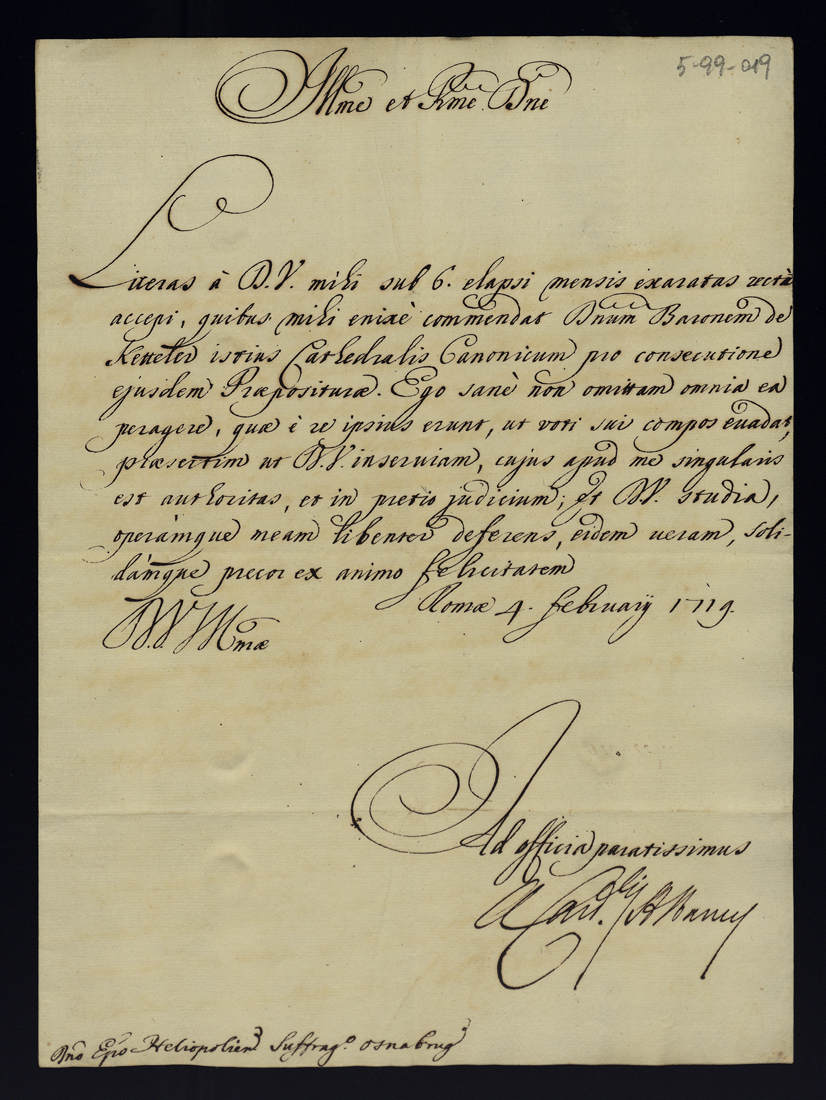 5-99-019
Illme et Rme Dne
Literas à D.V. mihi sub 6. elapsi mensis exaratas rectà
accepi, quibus mihi enixè commendat Dnum Baronem de
Ketteler istius Cathedralis Canonicum pro consecutione
ejusdem Præposituræ. Ego sanè non omittam omnia ea
peragere, quæ è re ipsius erunt, ut voti sui compos evadat,
præsertim ut D.V. inserviam, cujus apud me singularis
est authoritas, et in pretio judicium; Et D.V. studia,
operàmque meam libenter deferens, eidem veram, soli-
dàmque precor ex animo felicitatem
Romæ 4. februarij 1719.
D.V. Illmæ
Ad officia paratissimus
Card.
Dno Epo Heliopolien Suffrag.o Osnabrug